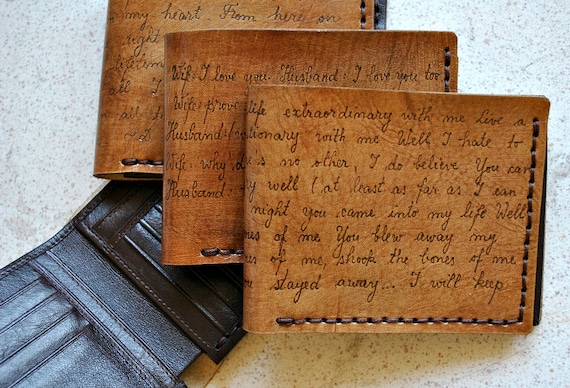 my heart. From here on
right
lifetime
all
Wife: I love you. Husband: I love you too
Wife: prove
Husband:
Wife: why
Husband:
life extraordinary with me Live a
tionary with me Well I hate to
is no other. I do believe, You can
y well (at least as far as I can
night you came into my life Well
nes of me You blew away my
s of me, shook the bones of me
u stayed away... I will keep